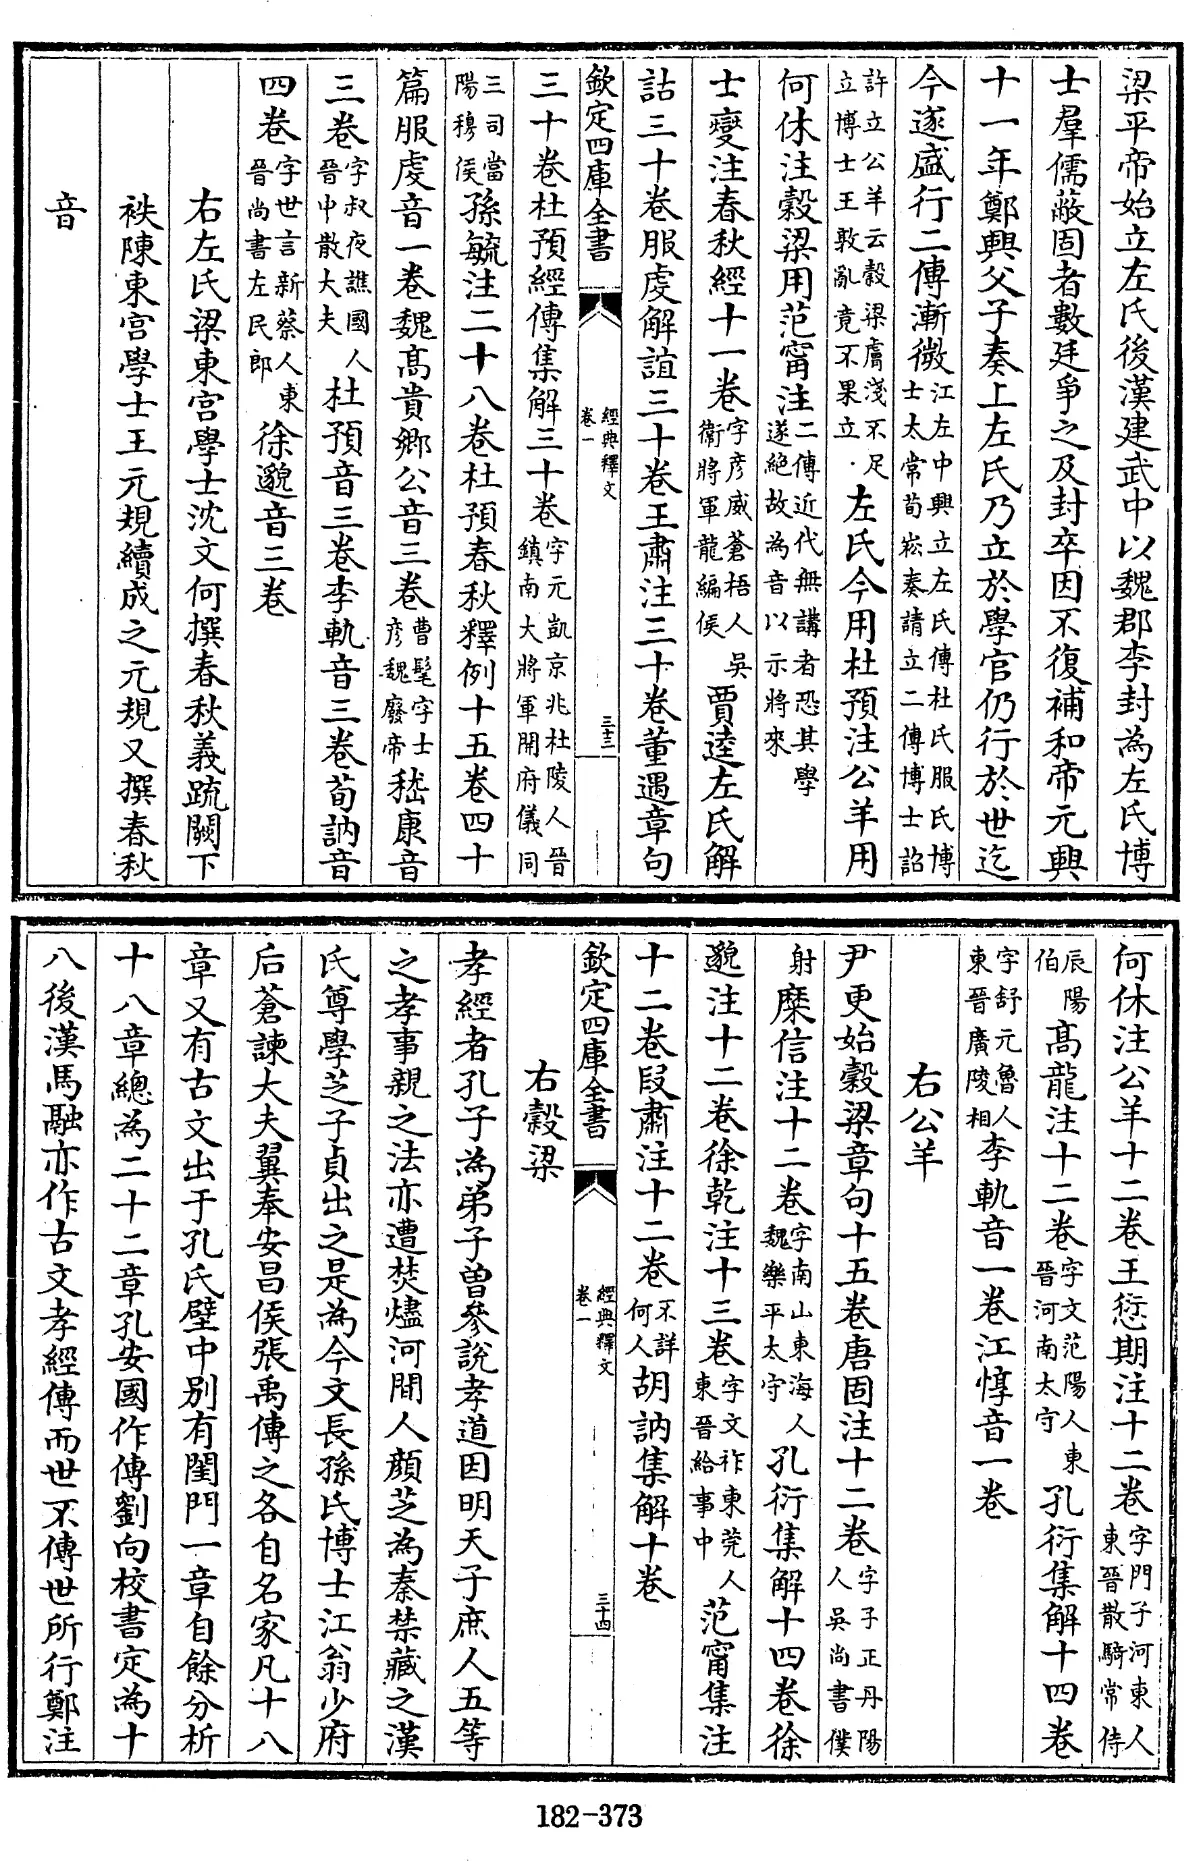 梁平帝始立左氏後漢建武中以魏郡李封為左氏博
士羣儒蔽固者數廷爭之及封卒因不復補和帝元興
十一年鄭興父子奏上左氏乃立於學官仍行於世迄
今遂盛行二傳漸微江左中興立左氏傳杜氏服氏博士太常荀崧奏請立二傳博士詔
許立公羊云穀梁膚淺不足立博士王敦亂竟不果立左氏今用杜預注公羊用
何休注穀梁用范甯注二傳近代無講者恐其學遂絕故為音以示將來
士燮注春秋經十一卷字彦威蒼梧人吳衛將軍龍編侯賈逵左氏解
詁三十卷服虔解誼三十卷王肅注三十卷董遇章句
欽定四庫全書
經典釋文
卷一
三十三
三十卷杜預經傳集解三十卷字元凱京兆杜陵人晉鎮南大將軍開府儀同
三司當陽穆侯孫毓注二十八卷杜預春秋釋例十五卷四十
篇服虔音一卷魏高貴鄉公音三卷曹髦字士彦魏廢帝嵇康音
三卷字叔夜譙國人晉中散大夫杜預音三卷李軌音三卷荀訥音
四卷字世言新蔡人東晉尚書左民郎徐邈音三卷
右左氏梁東宮學士沈文何撰春秋義疏闕下
袟陳東宮學士王元規續成之元規又撰春秋
音
何休注公羊十二卷王愆期注十二卷字門子河東人東晉散騎常侍
辰陽伯高龍注十二卷字文范陽人東晉河南太守孔衍集解十四卷
字舒元魯人東晉廣陵相李軌音一卷江惇音一卷
右公羊
尹更始穀梁章句十五卷唐固注十二卷字子正丹陽人吳尚書僕
射糜信注十二卷字南山東海人魏樂平太守孔衍集解十四卷徐
邈注十二卷徐乾注十三卷字文祚東莞人東晉給事中范甯集注
十二卷段肅注十二卷不詳何人胡訥集解十卷
欽定四庫全書
經典釋文
卷一
三十四
右穀梁
孝經者孔子為弟子曾參說孝道因明天子庶人五等
之孝事親之法亦遭焚燼河間人顏芝為秦禁藏之漢
氏尊學芝子貞出之是為今文長孫氏博士江翁少府
后蒼諫大夫翼奉安昌侯張禹傳之各自名家凡十八
章又有古文出于孔氏壁中別有閨門一章自餘分析
十八章總為二十二章孔安國作傳劉向校書定為十
八後漢馬融亦作古文孝經傳而世不傳世所行鄭注
182-373